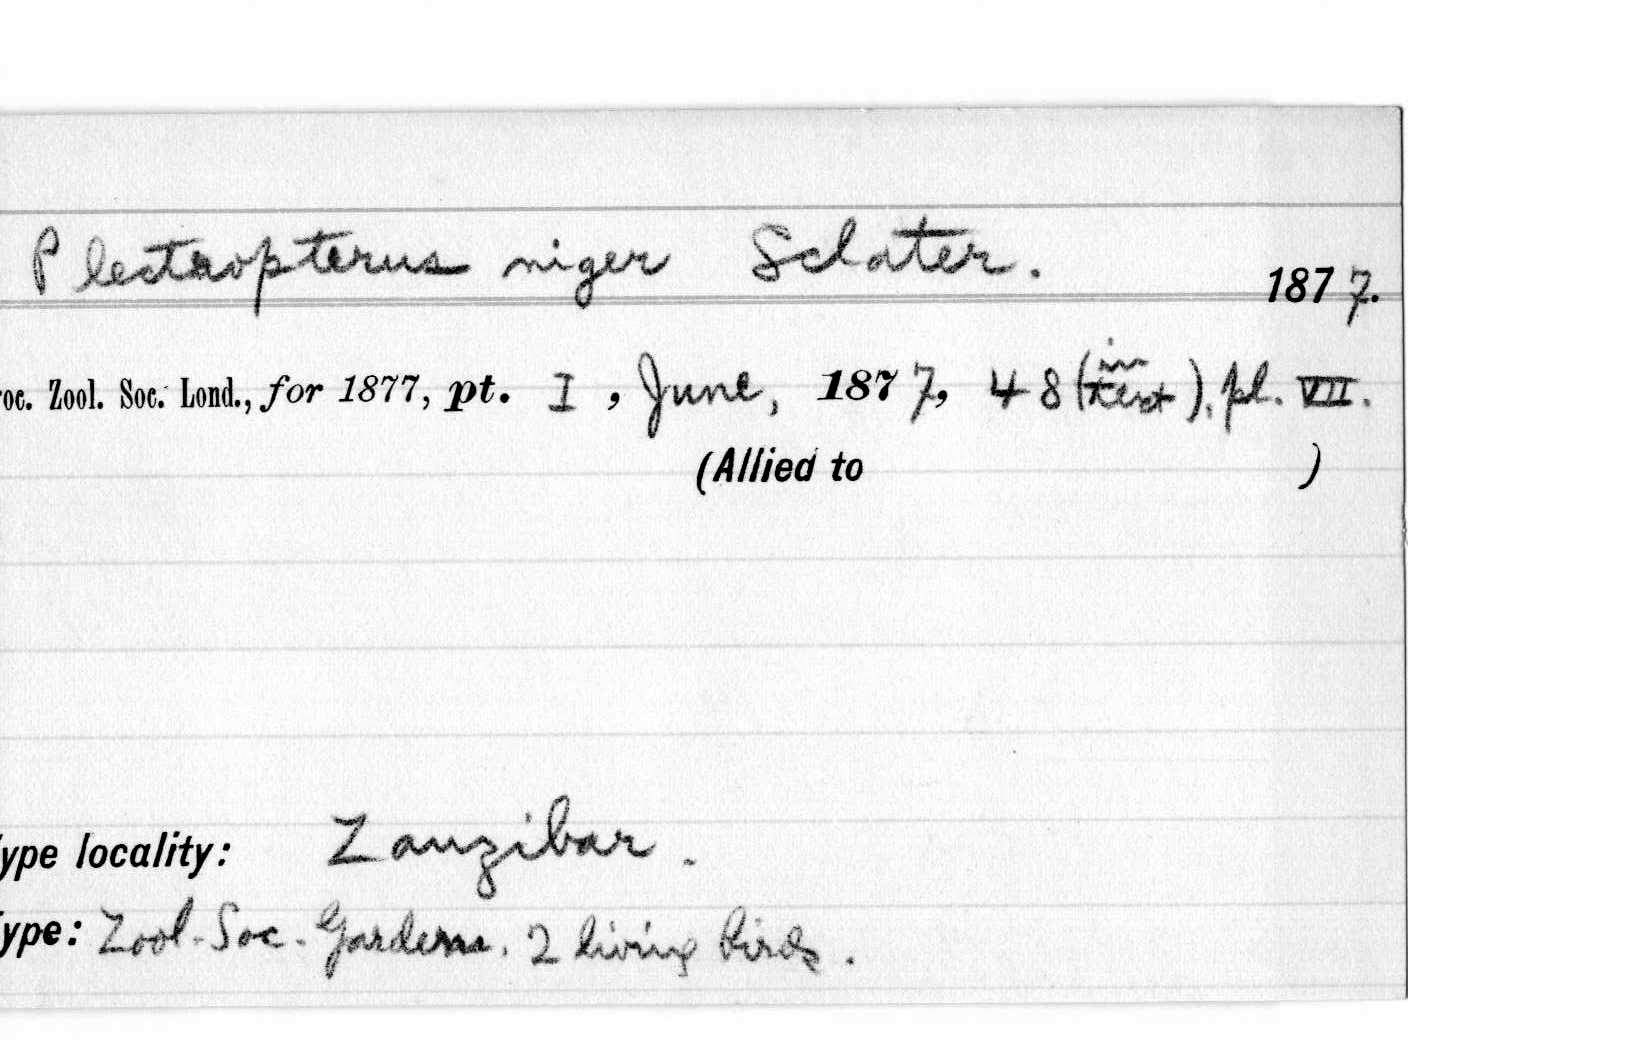 Plectropterus niger Sclater. 1877.
roc. Zool. Soc. Lond., for 1877, pt. I, June, 1877, 48 (in text), pl. VII.
(Allied to )
ype locality: Zanzibar.
ype: Zool. Soc. Gardens. 2 living birds.